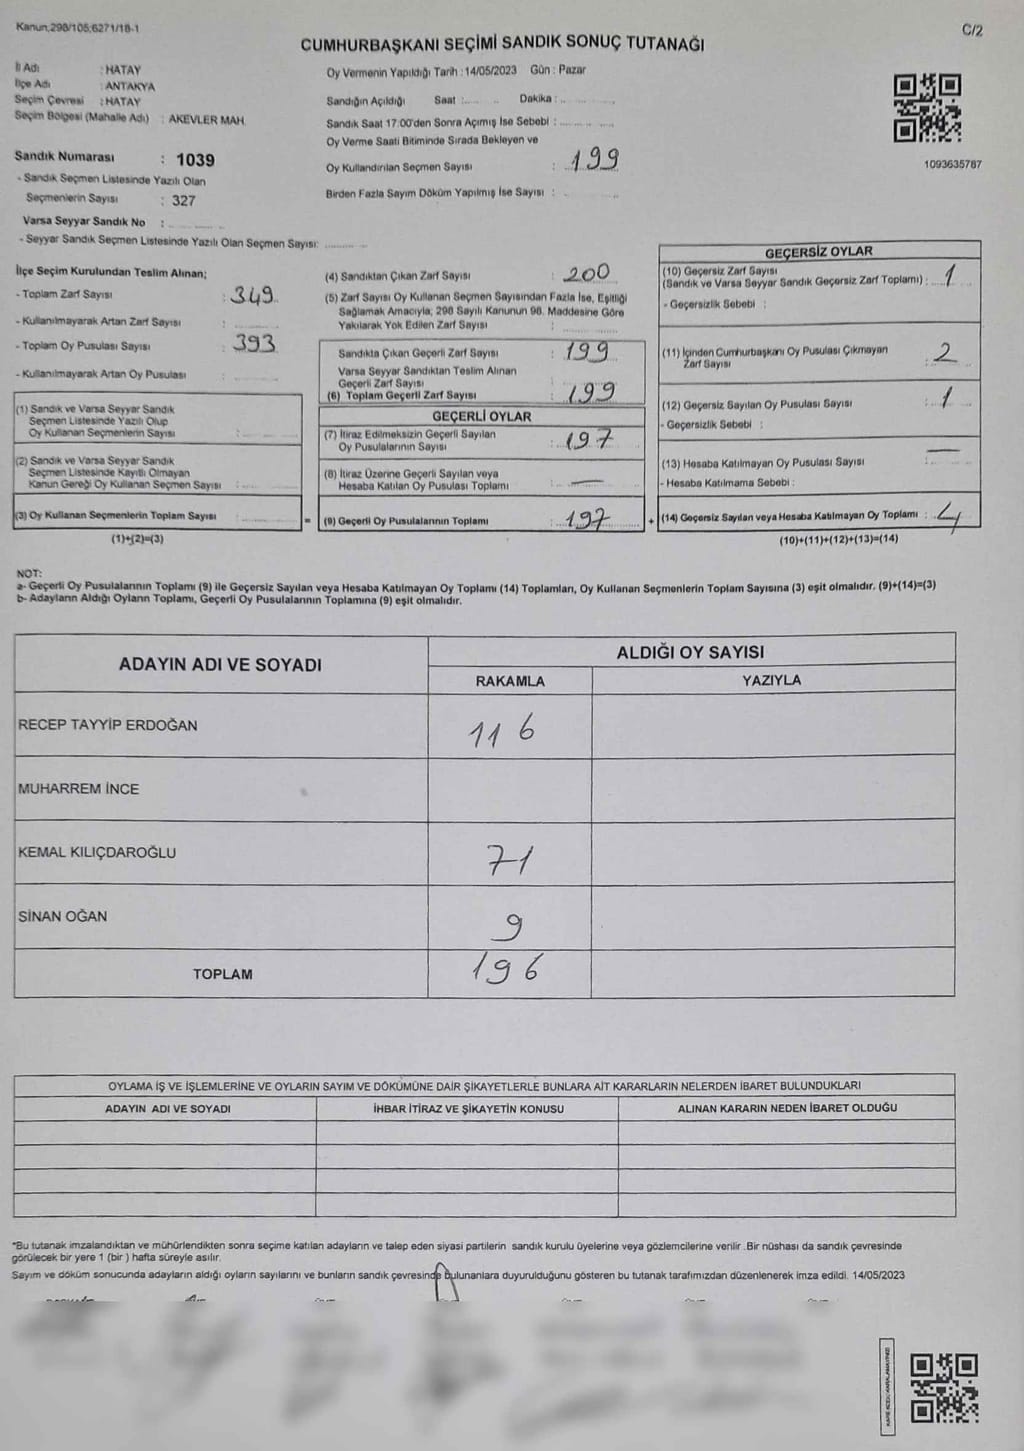 Kanun,298/105,6271/18-1
C/2
CUMHURBAŞKANI SEÇİMİ SANDIK SONUÇ TUTANAĞI
İl Adı : HATAY
İlçe Adı : ANTAKYA
Seçim Çevresi : HATAY
Seçim Bölgesi (Mahalle Adı) : AKEVLER MAH.
Sandık Numarası : 1039
- Sandık Seçmen Listesinde Yazılı Olan
Seçmenlerin Sayısı : 327
Varsa Seyyar Sandık No :
- Seyyar Sandık Seçmen Listesinde Yazılı Olan Seçmen Sayısı:
Oy Vermenin Yapıldığı Tarih : 14/05/2023 Gün : Pazar
Sandığın Açıldığı Saat : Dakika :
Sandık Saat 17:00'den Sonra Açımış İse Sebebi :
Oy Verme Saati Bitiminde Sırada Bekleyen ve
Oy Kullandırılan Seçmen Sayısı : 199
Birden Fazla Sayım Döküm Yapılmış İse Sayısı :
1093635787
İlçe Seçim Kurulundan Teslim Alınan;
- Toplam Zarf Sayısı : 349
- Kullanılmayarak Artan Zarf Sayısı :
- Toplam Oy Pusulası Sayısı : 393
- Kullanılmayarak Artan Oy Pusulası :
(1) Sandık ve Varsa Seyyar Sandık
Seçmen Listesinde Yazılı Olup
Oy Kullanan Seçmenlerin Sayısı :
(2) Sandık ve Varsa Seyyar Sandık
Seçmen Listesinde Kayıtlı Olmayan
Kanun Gereği Oy Kullanan Seçmen Sayısı :
(3) Oy Kullanan Seçmenlerin Toplam Sayısı :
(1)+(2)=(3)
(4) Sandıktan Çıkan Zarf Sayısı : 200
(5) Zarf Sayısı Oy Kullanan Seçmen Sayısından Fazla İse, Eşitliği
Sağlamak Amacıyla; 298 Sayılı Kanunun 98. Maddesine Göre
Yakılarak Yok Edilen Zarf Sayısı :
Sandıkta Çıkan Geçerli Zarf Sayısı : 199
Varsa Seyyar Sandıktan Teslim Alınan
Geçerli Zarf Sayısı :
(6) Toplam Geçerli Zarf Sayısı : 199
GEÇERLİ OYLAR
(7) İtiraz Edilmeksizin Geçerli Sayılan
Oy Pusulalarının Sayısı : 197
(8) İtiraz Üzerine Geçerli Sayılan veya
Hesaba Katılan Oy Pusulası Toplamı : —
= (9) Geçerli Oy Pusulalarının Toplamı : 197
GEÇERSİZ OYLAR
(10) Geçersiz Zarf Sayısı
(Sandık ve Varsa Seyyar Sandık Geçersiz Zarf Toplamı) : 1
- Geçersizlik Sebebi :
(11) İçinden Cumhurbaşkanı Oy Pusulası Çıkmayan
Zarf Sayısı : 2
(12) Geçersiz Sayılan Oy Pusulası Sayısı : 1
- Geçersizlik Sebebi :
(13) Hesaba Katılmayan Oy Pusulası Sayısı : —
- Hesaba Katılmama Sebebi :
+ (14) Geçersiz Sayılan veya Hesaba Katılmayan Oy Toplamı : 4
(10)+(11)+(12)+(13)=(14)
NOT:
a- Geçerli Oy Pusulalarının Toplamı (9) ile Geçersiz Sayılan veya Hesaba Katılmayan Oy Toplamı (14) Toplamları, Oy Kullanan Seçmenlerin Toplam Sayısına (3) eşit olmalıdır. (9)+(14)=(3)
b- Adayların Aldığı Oyların Toplamı, Geçerli Oy Pusulalarının Toplamına (9) eşit olmalıdır.
ADAYIN ADI VE SOYADI
ALDIĞI OY SAYISI
RAKAMLA YAZIYLA
RECEP TAYYİP ERDOĞAN 116
MUHARREM İNCE
KEMAL KILIÇDAROĞLU 71
SİNAN OĞAN 9
TOPLAM 196
OYLAMA İŞ VE İŞLEMLERİNE VE OYLARIN SAYIM VE DÖKÜMÜNE DAİR ŞİKAYETLERLE BUNLARA AİT KARARLARIN NELERDEN İBARET BULUNDUKLARI
ADAYIN ADI VE SOYADI İHBAR İTİRAZ VE ŞİKAYETİN KONUSU ALINAN KARARIN NEDEN İBARET OLDUĞU
*Bu tutanak imzalandıktan ve mühürlendikten sonra seçime katılan adayların ve talep eden siyasi partilerin sandık kurulu üyelerine veya gözlemcilerine verilir .Bir nüshası da sandık çevresinde
görülecek bir yere 1 (bir ) hafta süreyle asılır.
Sayım ve döküm sonucunda adayların aldığı oyların sayılarını ve bunların sandık çevresinde bulunanlara duyurulduğunu gösteren bu tutanak tarafımızdan düzenlenerek imza edildi. 14/05/2023